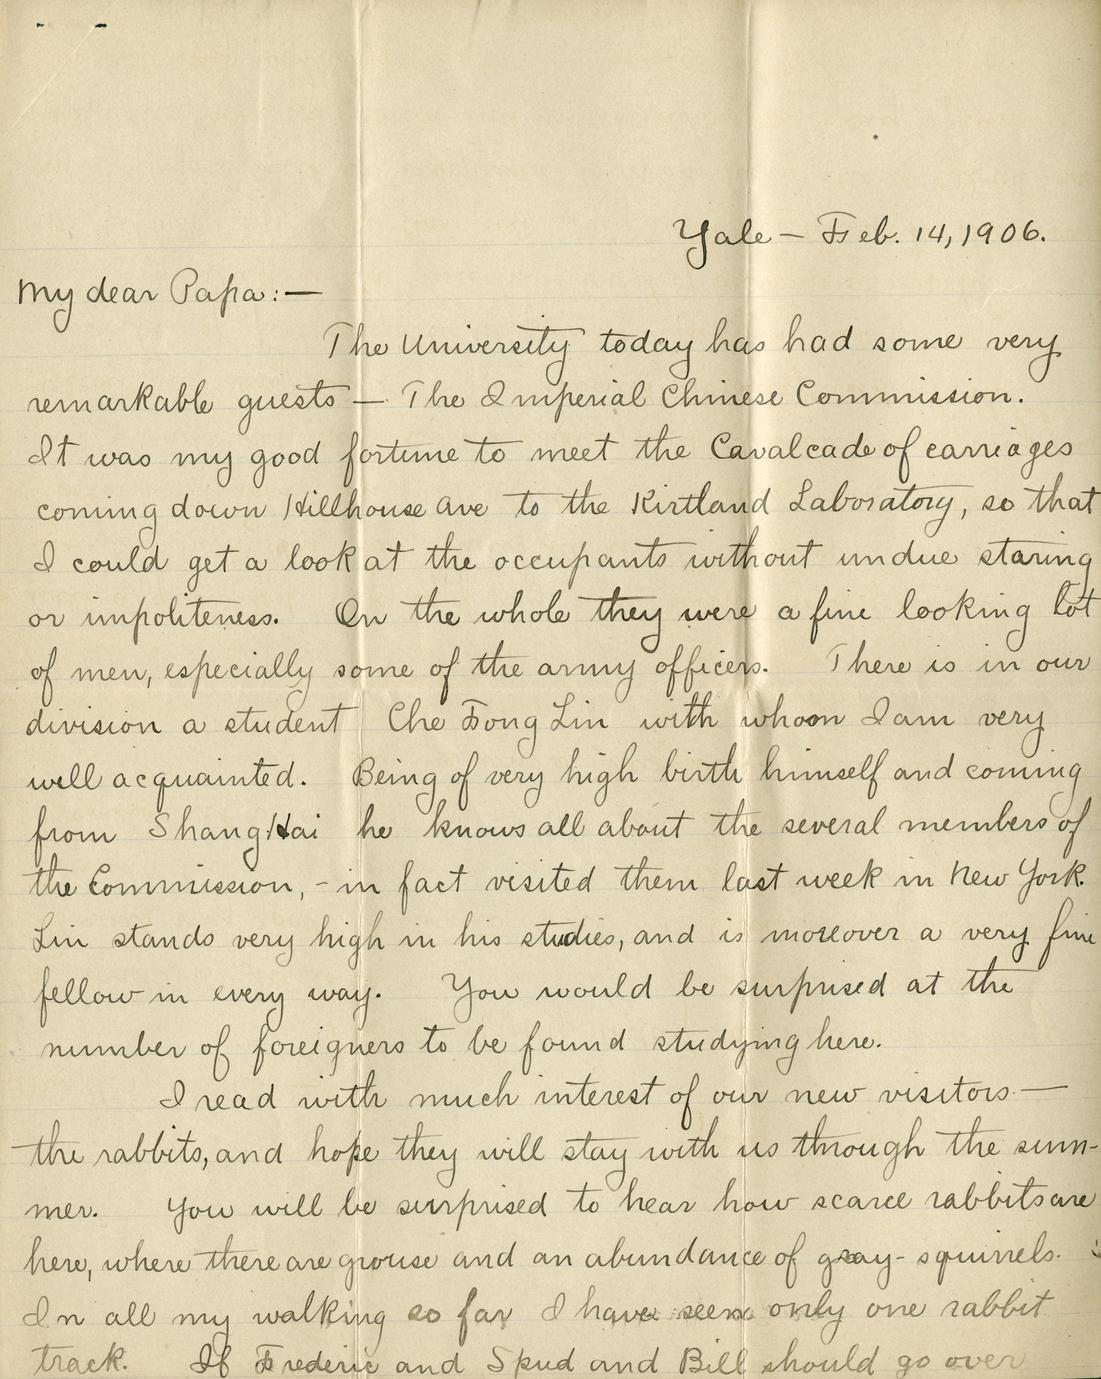 Yale — Feb. 14, 1906.
My dear Papa:—
The University today has had some very
remarkable guests — The Imperial Chinese Commission.
It was my good fortune to meet the Cavalcade of carriages
coming down Hillhouse Ave to the Kirtland Laboratory, so that
I could get a look at the occupants without undue staring
or impoliteness. On the whole they were a fine looking lot
of men, especially some of the army officers. There is in our
division a student Che Fong Lin with whom I am very
well acquainted. Being of very high birth himself and coming
from ShangHai he knows all about the several members of
the Commission, - in fact visited them last week in New York.
Lin stands very high in his studies, and is moreover a very fine
fellow in every way. You would be surprised at the
number of foreigners to be found studying here.
I read with much interest of our new visitors —
the rabbits, and hope they will stay with us through the sum-
mer. You will be surprised to hear how scarce rabbits are
here, where there are grouse and an abundance of gray-squirrels.
In all my walking so far I have seen only one rabbit
track. If Frederic and Spud and Bill should go over